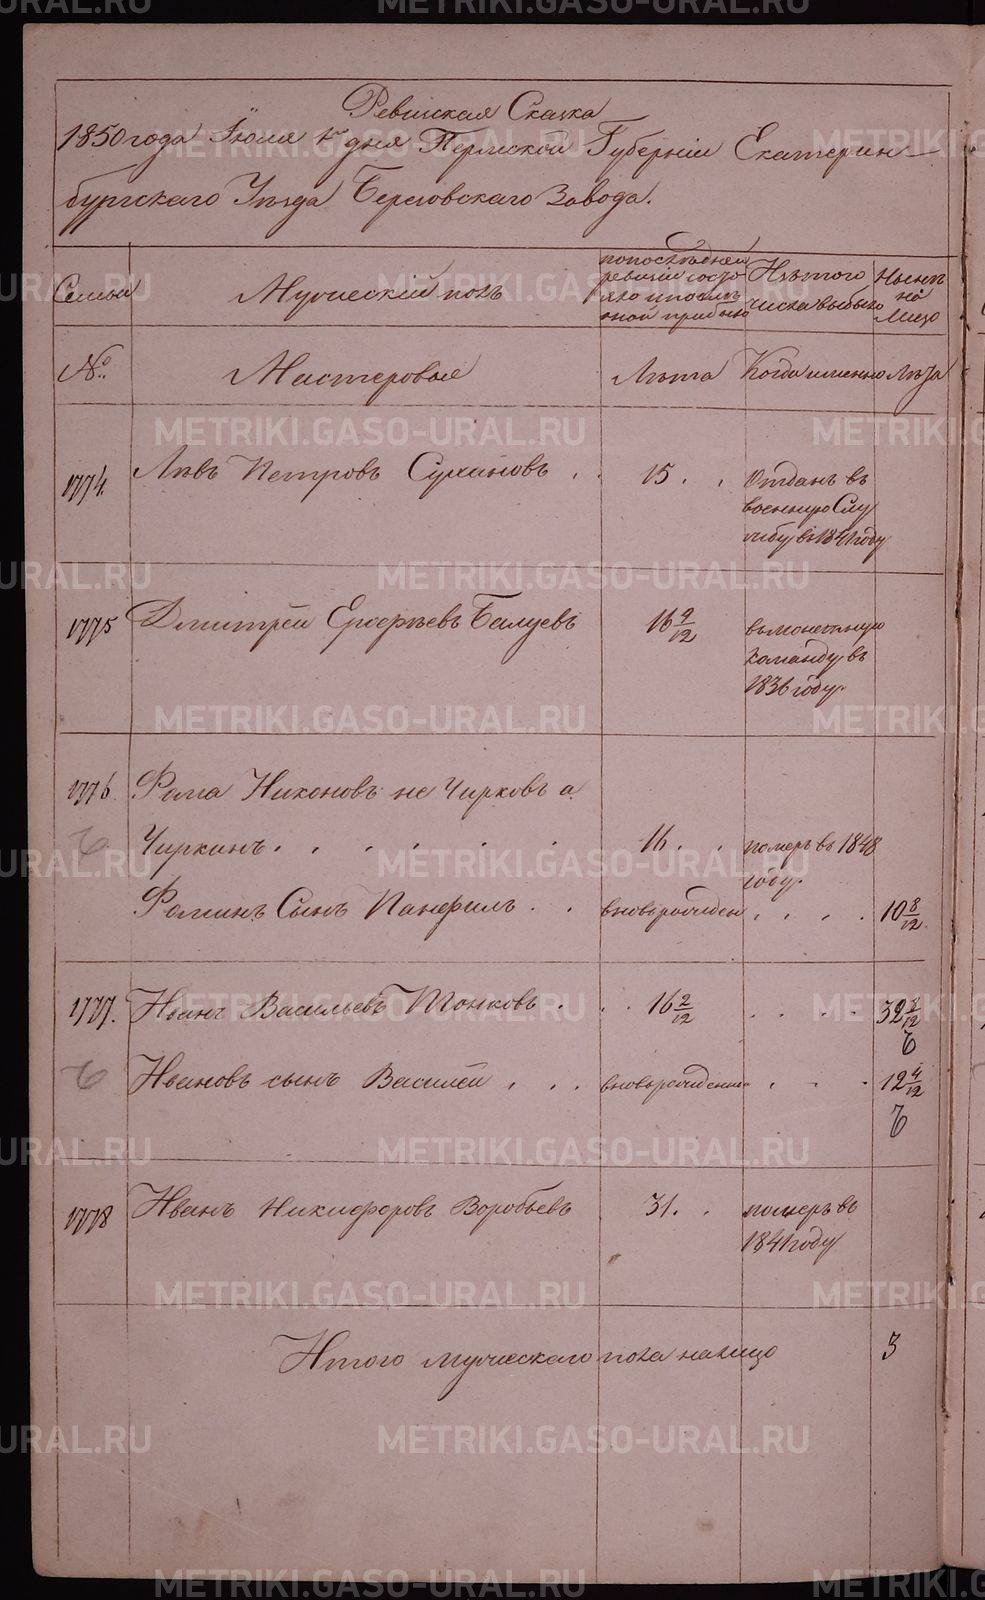 Ревизская Сказка
1850 года Іюля дня Пермской Губерніи Екатерин
бургскаго Уѣзда Березовскаго Завода.
Семьи
Мужескій полъ
по послѣдней
ревизіи состо
яло и послѣ
оной прибыло
Изъ того
числа выбыло
Нынѣ
на
Лицо
№
Мастеровые
Лѣта
Когда именно
Лѣта
1774.
Левъ Петровъ Сухановъ . .
15. .
Отданъ въ
военную Слу
жбу въ 1841 году
1775
Дмитрей Ерофѣевъ Балуевъ
16 9/12
въ монетную
команду въ
1836 году.
1776.
Фома Никоновъ не Чирковъ а
Чиркинъ . . . . . .
16. .
померъ въ 1848
году.
Фоминъ Сынъ Панфилъ . .
вновь рожден
. . . .
10 8/12.
1777.
Иванъ Васильевъ Тонковъ .
. . 16 2/12
. . . .
32 2/12
Ивановъ сынъ Василей . . .
вновь рожденн
. . .
12 4/12
1778
Иванъ Никифоровъ Воробьевъ
31. .
померъ въ
1841 году
Итого мужескаго пола налицо
3
METRIKI.GASO-URAL.RU